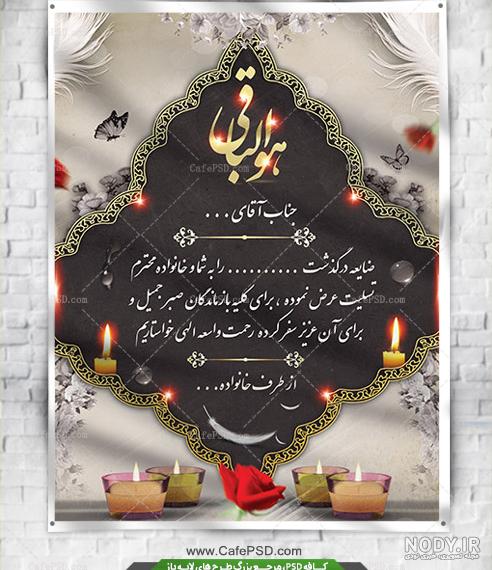 هوالباقی
جناب آقای ...
ضایعه درگذشت .......... را به شما و خانواده محترم
تسلیت عرض نموده ، برای کلیه بازماندگان صبر جمیل و
برای آن عزیز سفر کرده رحمت واسعه الهی خواستاریم
از طرف خانواده ...
CafePSD.com
www.CafePSD.com
کافه PSD، مرجع بزرگ طرح های لایه باز
NODY.IR